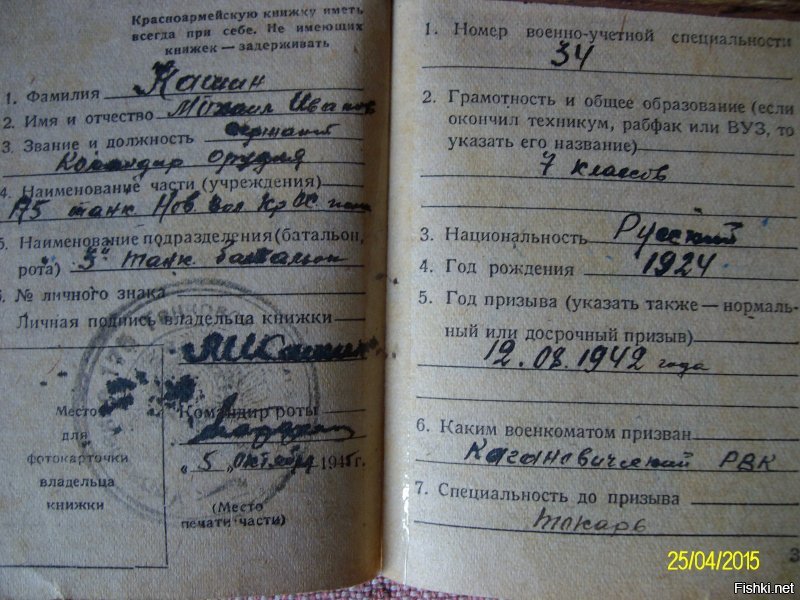 Красноармейскую книжку иметь
всегда при себе. Не имеющих
книжек — задерживать
1. Фамилия Кашин
2. Имя и отчество Михаил Иванов
3. Звание и должность сержант
Командир орудия
4. Наименование части (учреждения)
175 танк Нов Вол Кр
5. Наименование подразделения (батальон,
рота) 3й танк батальон
6. № личного знака
Личная подпись владельца книжки
Командир роты
"5" октября 1945г.
Место
для
фотокарточки
владельца
книжки
(Место
печати части)
1. Номер военно-учетной специальности
34
2. Грамотность и общее образование (если
окончил техникум, рабфак или ВУЗ, то
указать его название)
7 классов
3. Национальность Русский
4. Год рождения 1924
5. Год призыва (указать также — нормаль-
ный или досрочный призыв)
12.08.1942 года
6. Каким военкоматом призван
Кагановический РВК
7. Специальность до призыва
токарь
3
25/04/2015
Fishki.net